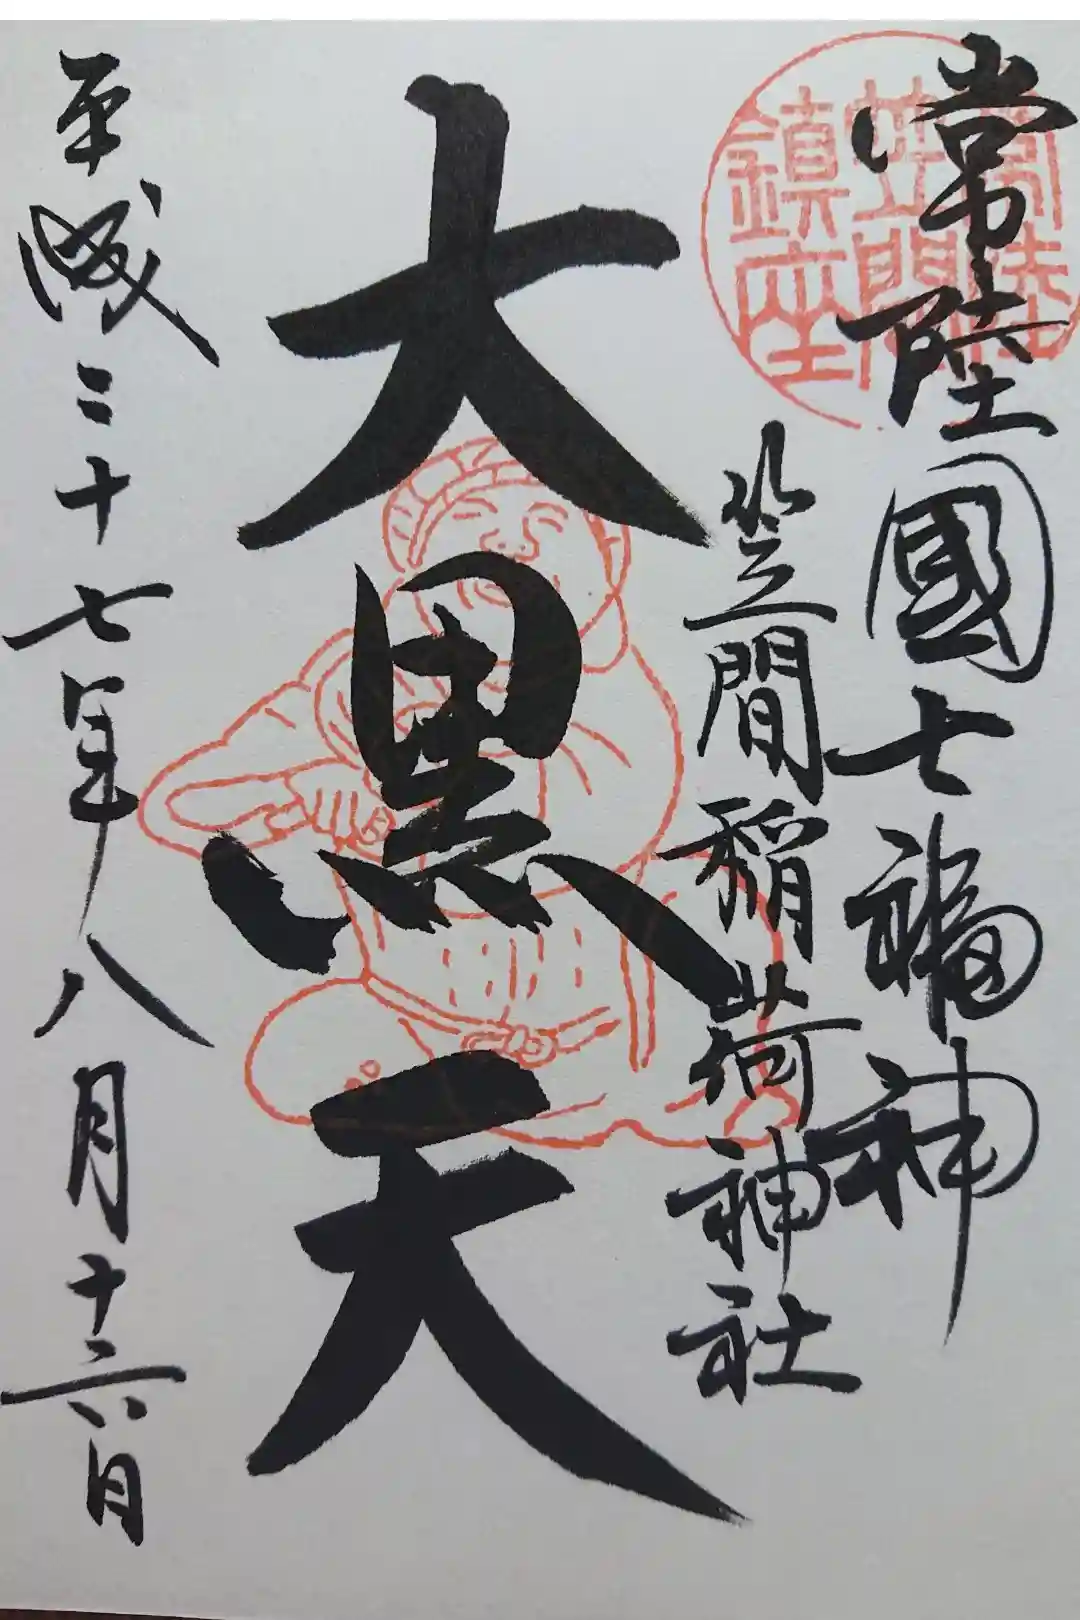 常陸國七福神
笠間稲荷神社
常陸
笠間
鎮座
大黒天
平成二十七年八月十六日